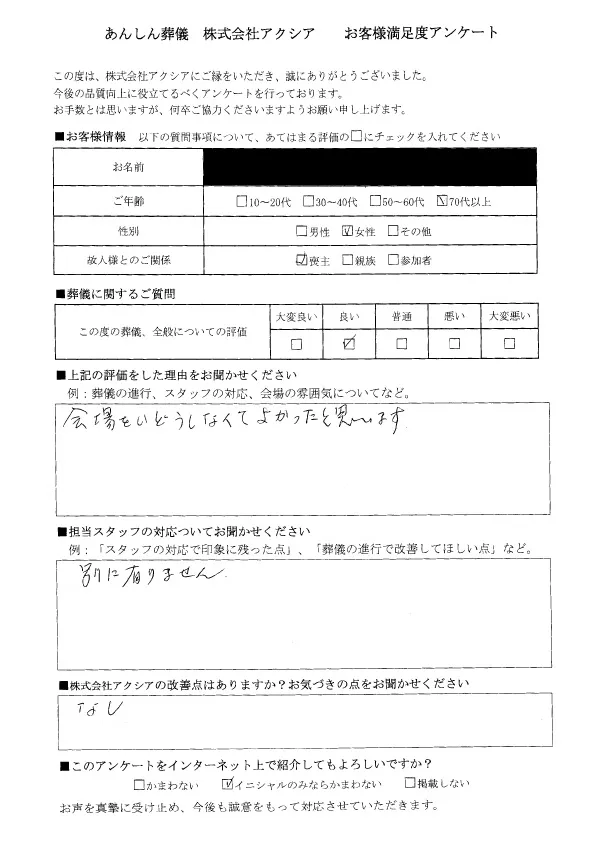 あんしん葬儀 株式会社アクシア お客様満足度アンケート
この度は、株式会社アクシアにご縁をいただき、誠にありがとうございました。
今後の品質向上に役立てるべくアンケートを行っております。
お手数とは思いますが、何卒ご協力くださいますようお願い申し上げます。
■お客様情報 以下の質問事項について、あてはまる評価の□にチェックを入れてください
お名前
ご年齢 □10～20代 □30～40代 □50～60代 ☑70代以上
性別 □男性 ☑女性 □その他
故人様とのご関係 ☑喪主 □親族 □参加者
■葬儀に関するご質問
大変良い 良い 普通 悪い 大変悪い
この度の葬儀、全般についての評価 □ ☑ □ □ □
■上記の評価をした理由をお聞かせください
例：葬儀の進行、スタッフの対応、会場の雰囲気についてなど。
会場をいどうしなくてよかったと思います
■担当スタッフの対応ついてお聞かせください
例：「スタッフの対応で印象に残った点」、「葬儀の進行で改善してほしい点」など。
別に有りません
■株式会社アクシアの改善点はありますか？お気づきの点をお聞かせください
なし
■このアンケートをインターネット上で紹介してもよろしいですか？
□かまわない ☑イニシャルのみならかまわない □掲載しない
お声を真摯に受け止め、今後も誠意をもって対応させていただきます。